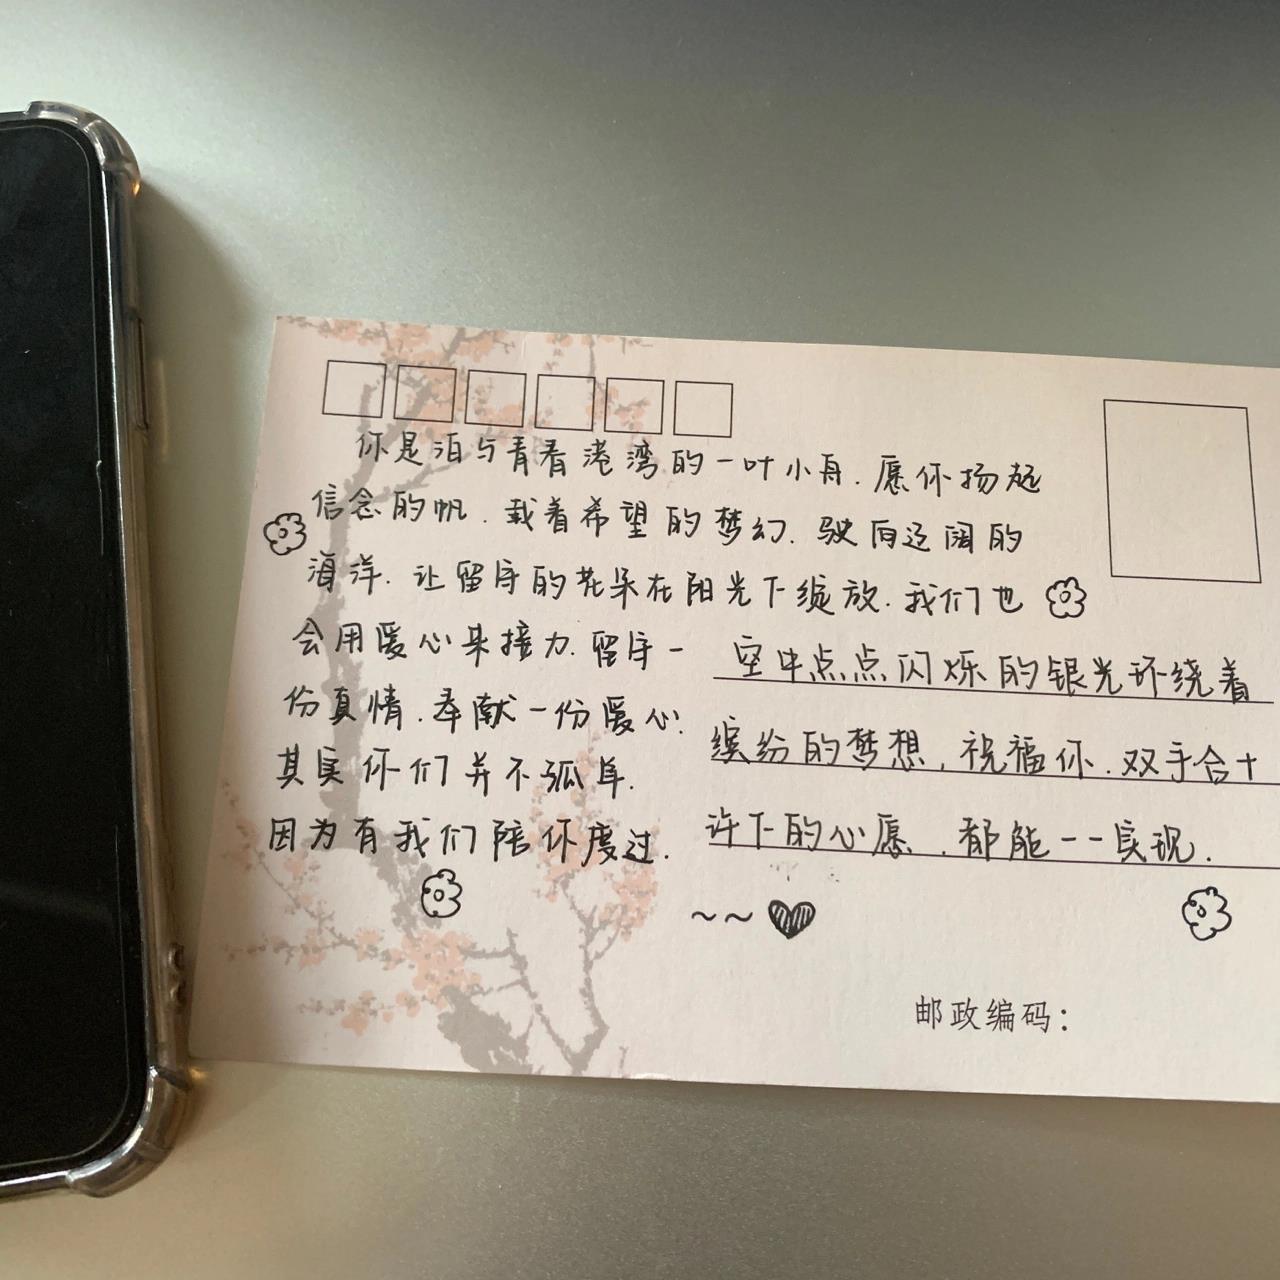 你是泊与青春港湾的一叶小舟.愿你扬起
信念的帆.载着希望的梦幻.驶向辽阔的
海洋.让留守的花朵在阳光下绽放.我们也
会用暖心来接力.留守一
份真情.奉献一份暖心.
其实你们并不孤单.
因为有我们陪你度过.
空中点点闪烁的银光环绕着
缤纷的梦想,祝福你.双手合十
许下的心愿,都能一一实现.
~~
邮政编码：